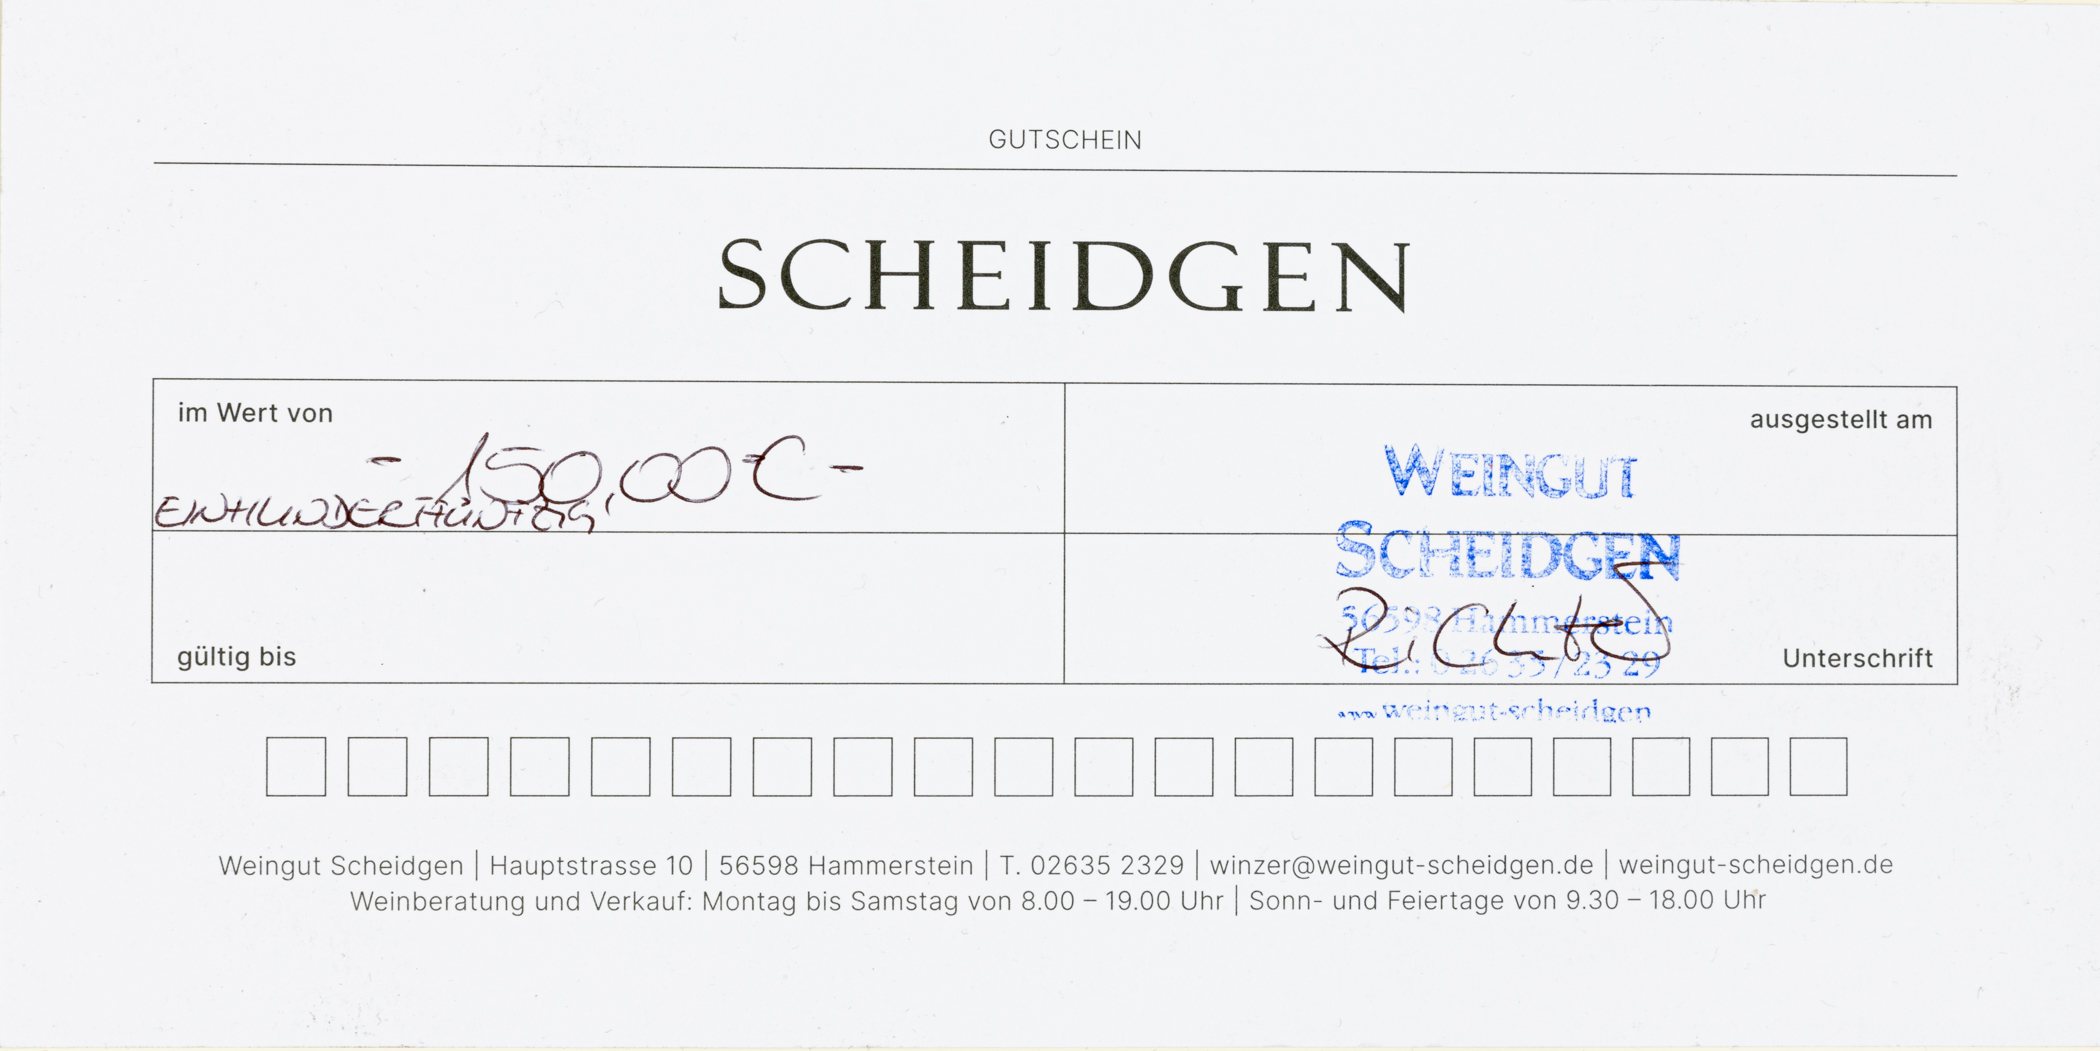 GUTSCHEIN
SCHEIDGEN
im Wert von
ausgestellt am
- 150,00 € -
EINHUNDERTFÜNFZIG
WEINGUT
SCHEIDGEN
56598 Hammerstein
Tel.: 0 26 35 / 23 29
gültig bis
Unterschrift
www.weingut-scheidgen
Weingut Scheidgen | Hauptstrasse 10 | 56598 Hammerstein | T. 02635 2329 | winzer@weingut-scheidgen.de | weingut-scheidgen.de
Weinberatung und Verkauf: Montag bis Samstag von 8.00 – 19.00 Uhr | Sonn- und Feiertage von 9.30 – 18.00 Uhr